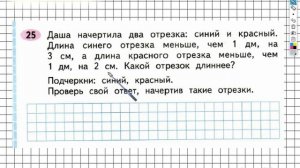 25 Даша начертила два отрезка: синий и красный.
Длина синего отрезка меньше, чем 1 дм, на
3 см, а длина красного отрезка меньше, чем
1 дм, на 2 см. Какой отрезок длиннее?
Подчеркни: синий, красный.
Проверь свой ответ, начертив такие отрезки.